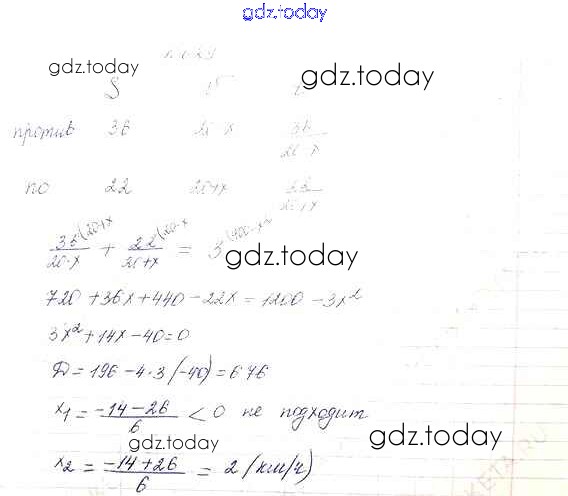 gdz.today
gdz.today
gdz.today
S v t
против 36 20-x 36/20-x
по 22 20+x 22/20+x
36/20-x + 22/20+x = 3
gdz.today
720 + 36x + 440 - 22x = 1200 - 3x²
3x² + 14x - 40 = 0
D = 196 - 4·3(-40) = 676
x₁ = -14-26/6 < 0 не подходит
gdz.today
gdz.today
x₂ = -14+26/6 = 2 (км/ч)